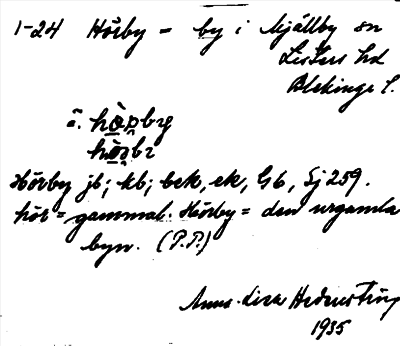 1-24 Hörby = by i Mjällby sn
Listers hd
Blekinge l.
ä. hò̠ṇbry
hò̠ṇbr
Hörby jb; kb; bek, ek, Gb, Sj 259.
hör = gammal. Hörby = den urgamla
byn. (P.P.)
Anna-Lisa
1935